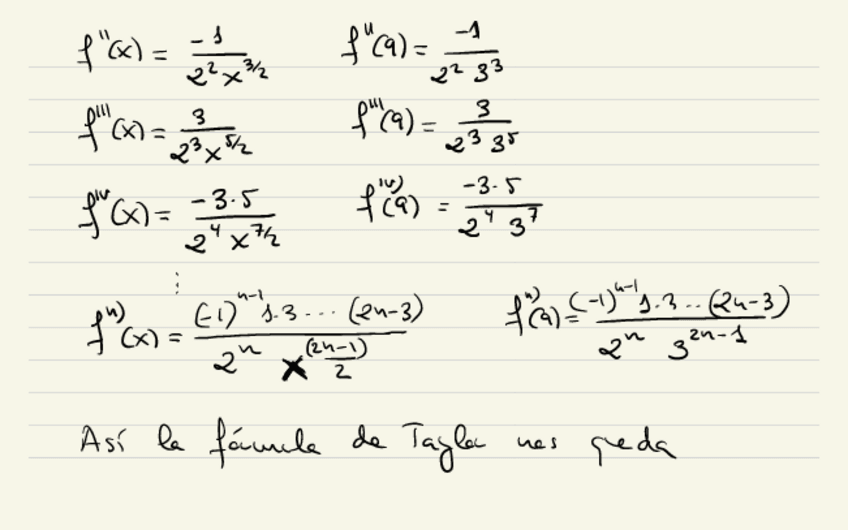 f''(x) = -1 / (2² x^(3/2)) f''(9) = -1 / (2² 3³)
f'''(x) = 3 / (2³ x^(5/2)) f'''(9) = 3 / (2³ 3⁵)
f^(iv)(x) = -3·5 / (2⁴ x^(7/2)) f^(iv)(9) = -3·5 / (2⁴ 3⁷)
⋮
f^(n)(x) = (-1)^(n-1) 1·3··· (2n-3) / (2^n x^((2n-1)/2)) f^(n)(9) = (-1)^(n-1) 1·3··(2n-3) / (2^n 3^(2n-1))
Así la fórmula de Taylor nos queda